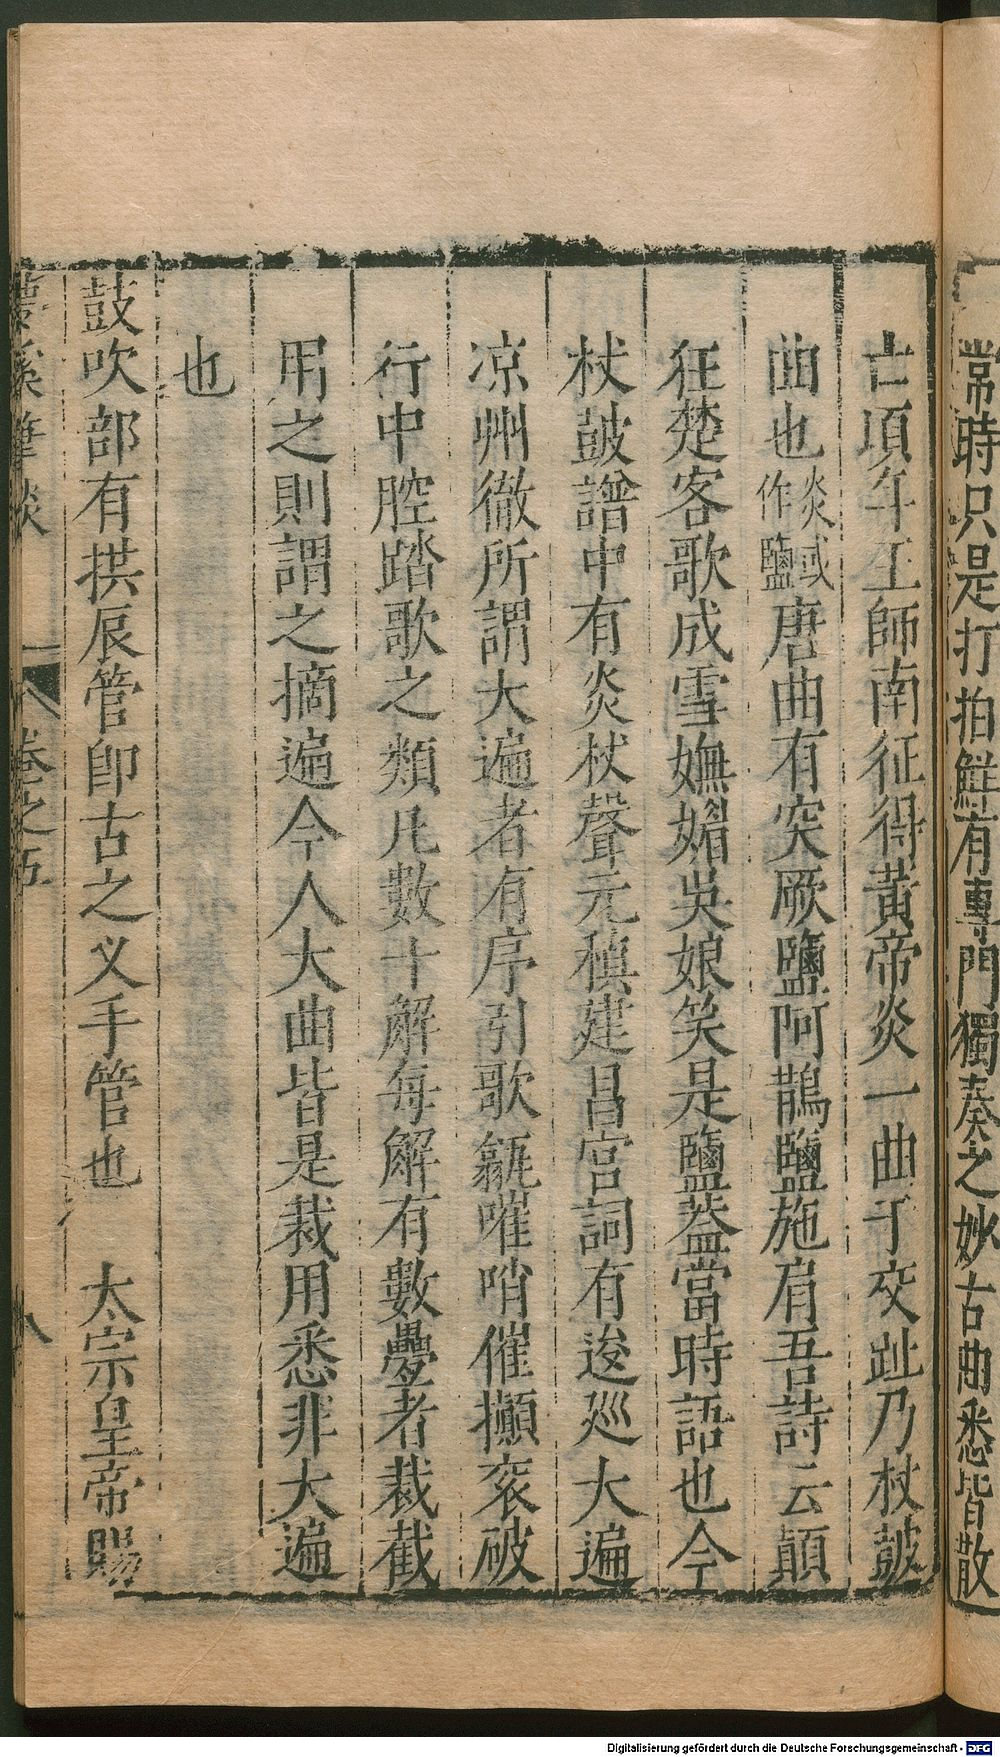 常時只是打拍鮮有專門獨奏之妙古曲悉皆散
亡項年王師南征得黃帝炎一曲于交趾乃杖鼓
曲也炎或作鹽唐曲有突厥鹽阿鵲鹽施肩吾詩云顛
狂楚客歌成雪嫵媚吳娘笑是鹽葢當時語也今
杖鼓譜中有炎杖聲元稹建昌宮詞有逡廵大遍
凉州徹所謂大遍者有序引歌㽃嗺哨催攧衮破
行中腔踏歌之類凡數十解每解有數疊者裁截
用之則謂之摘遍今人大曲皆是裁用悉非大遍
也
鼓吹部有拱辰管卽古之义手管也　太宗皇帝賜
夢溪筆談　卷之五　八
Digitalisierung gefördert durch die Deutsche Forschungsgemeinschaft - DFG